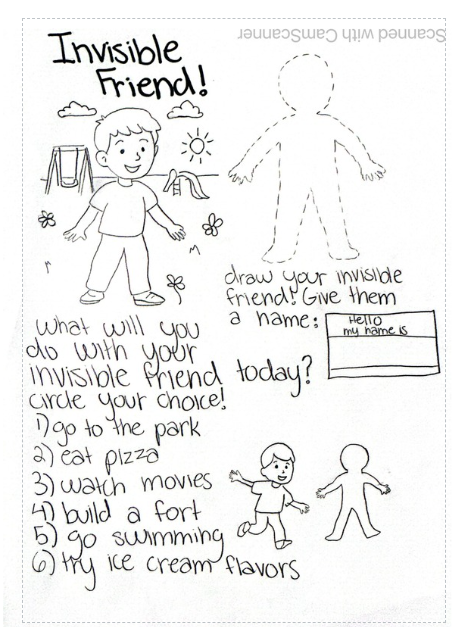 Scanned with CamScanner
Invisible
Friend!
draw your invisible
friend! Give them
a name:
Hello
my name is
What will you
do with your
invisible friend today?
circle your choice!
1) go to the park
2) eat pizza
3) watch movies
4) build a fort
5) go swimming
6) try ice cream flavors